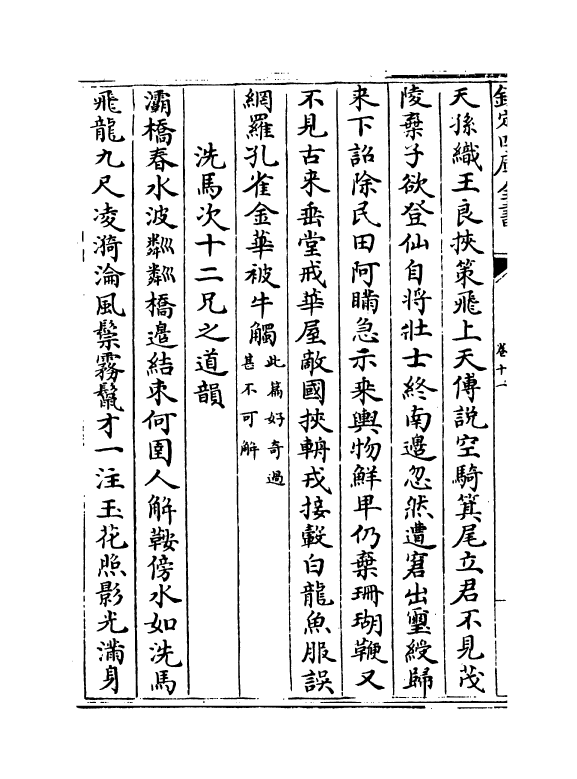 欽定四庫全書
卷十一
天孫織王良挾策飛上天傅說空騎箕尾立君不見茂
陵棄子欲登仙自將壯士終南邊忽然遭窘出璽綬歸
来下詔除民田阿瞞急示乗輿物鮮卑仍棄珊瑚鞭又
不見古来垂堂戒華屋敵國挾輈戎接轂白龍魚服誤
網羅孔雀金華被牛觸此篇好奇過
甚不可解
洗馬次十二兄之道韻
灞橋春水波粼粼橋邉結束何圉人解鞍傍水如洗馬
飛龍九尺凌漪淪風鬃霧鬛才一注玉花照影光滿身